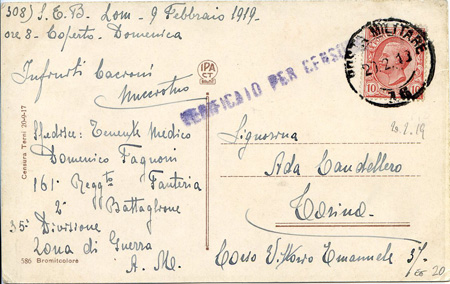 308) S.E.B. Lom - 9 Febbraio 1919 -
ore 8 - Coperto - Domenica
Infruiti Cacroni
IPA
CT
VERIFICATO PER CENSURA
POSTA MILITARE
20.2.19
10
10
16
20-2-19
Censura Terni 20-9-17
Speditore: Tenente Medico
Domenico Fagnoni
161° Regg.to Fanteria
2° Battaglione
35° Divisione
Zona di Guerra
A. M.
Signorina
Ada Candellero
Torino
Corso Vittorio Emanuele 37
586 Bromitcolore
20